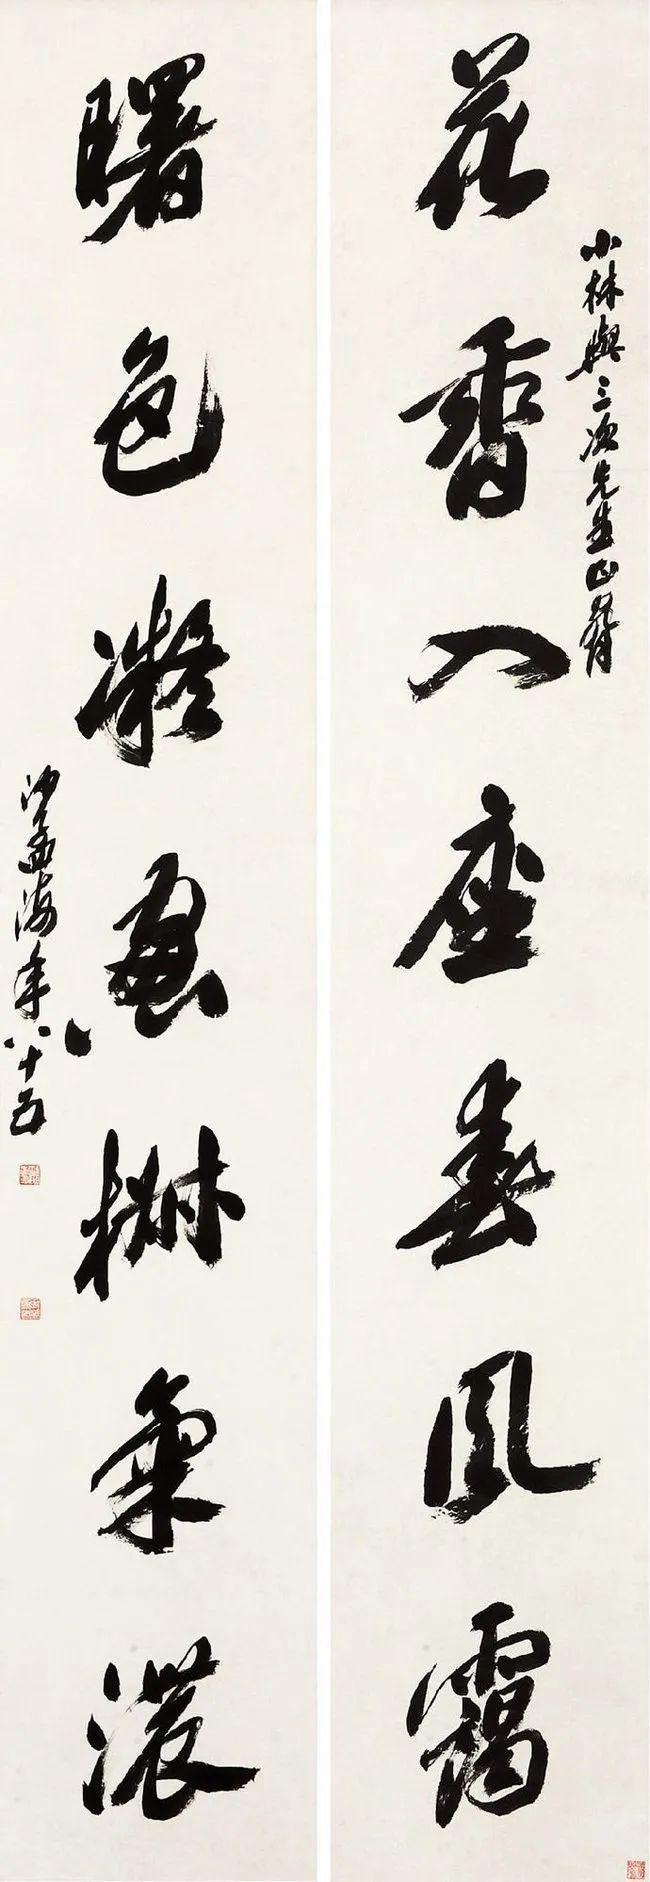 小林與三次先生正
花香入座春風靄
曙色凝窗椒氣濃
沙孟海年八十五